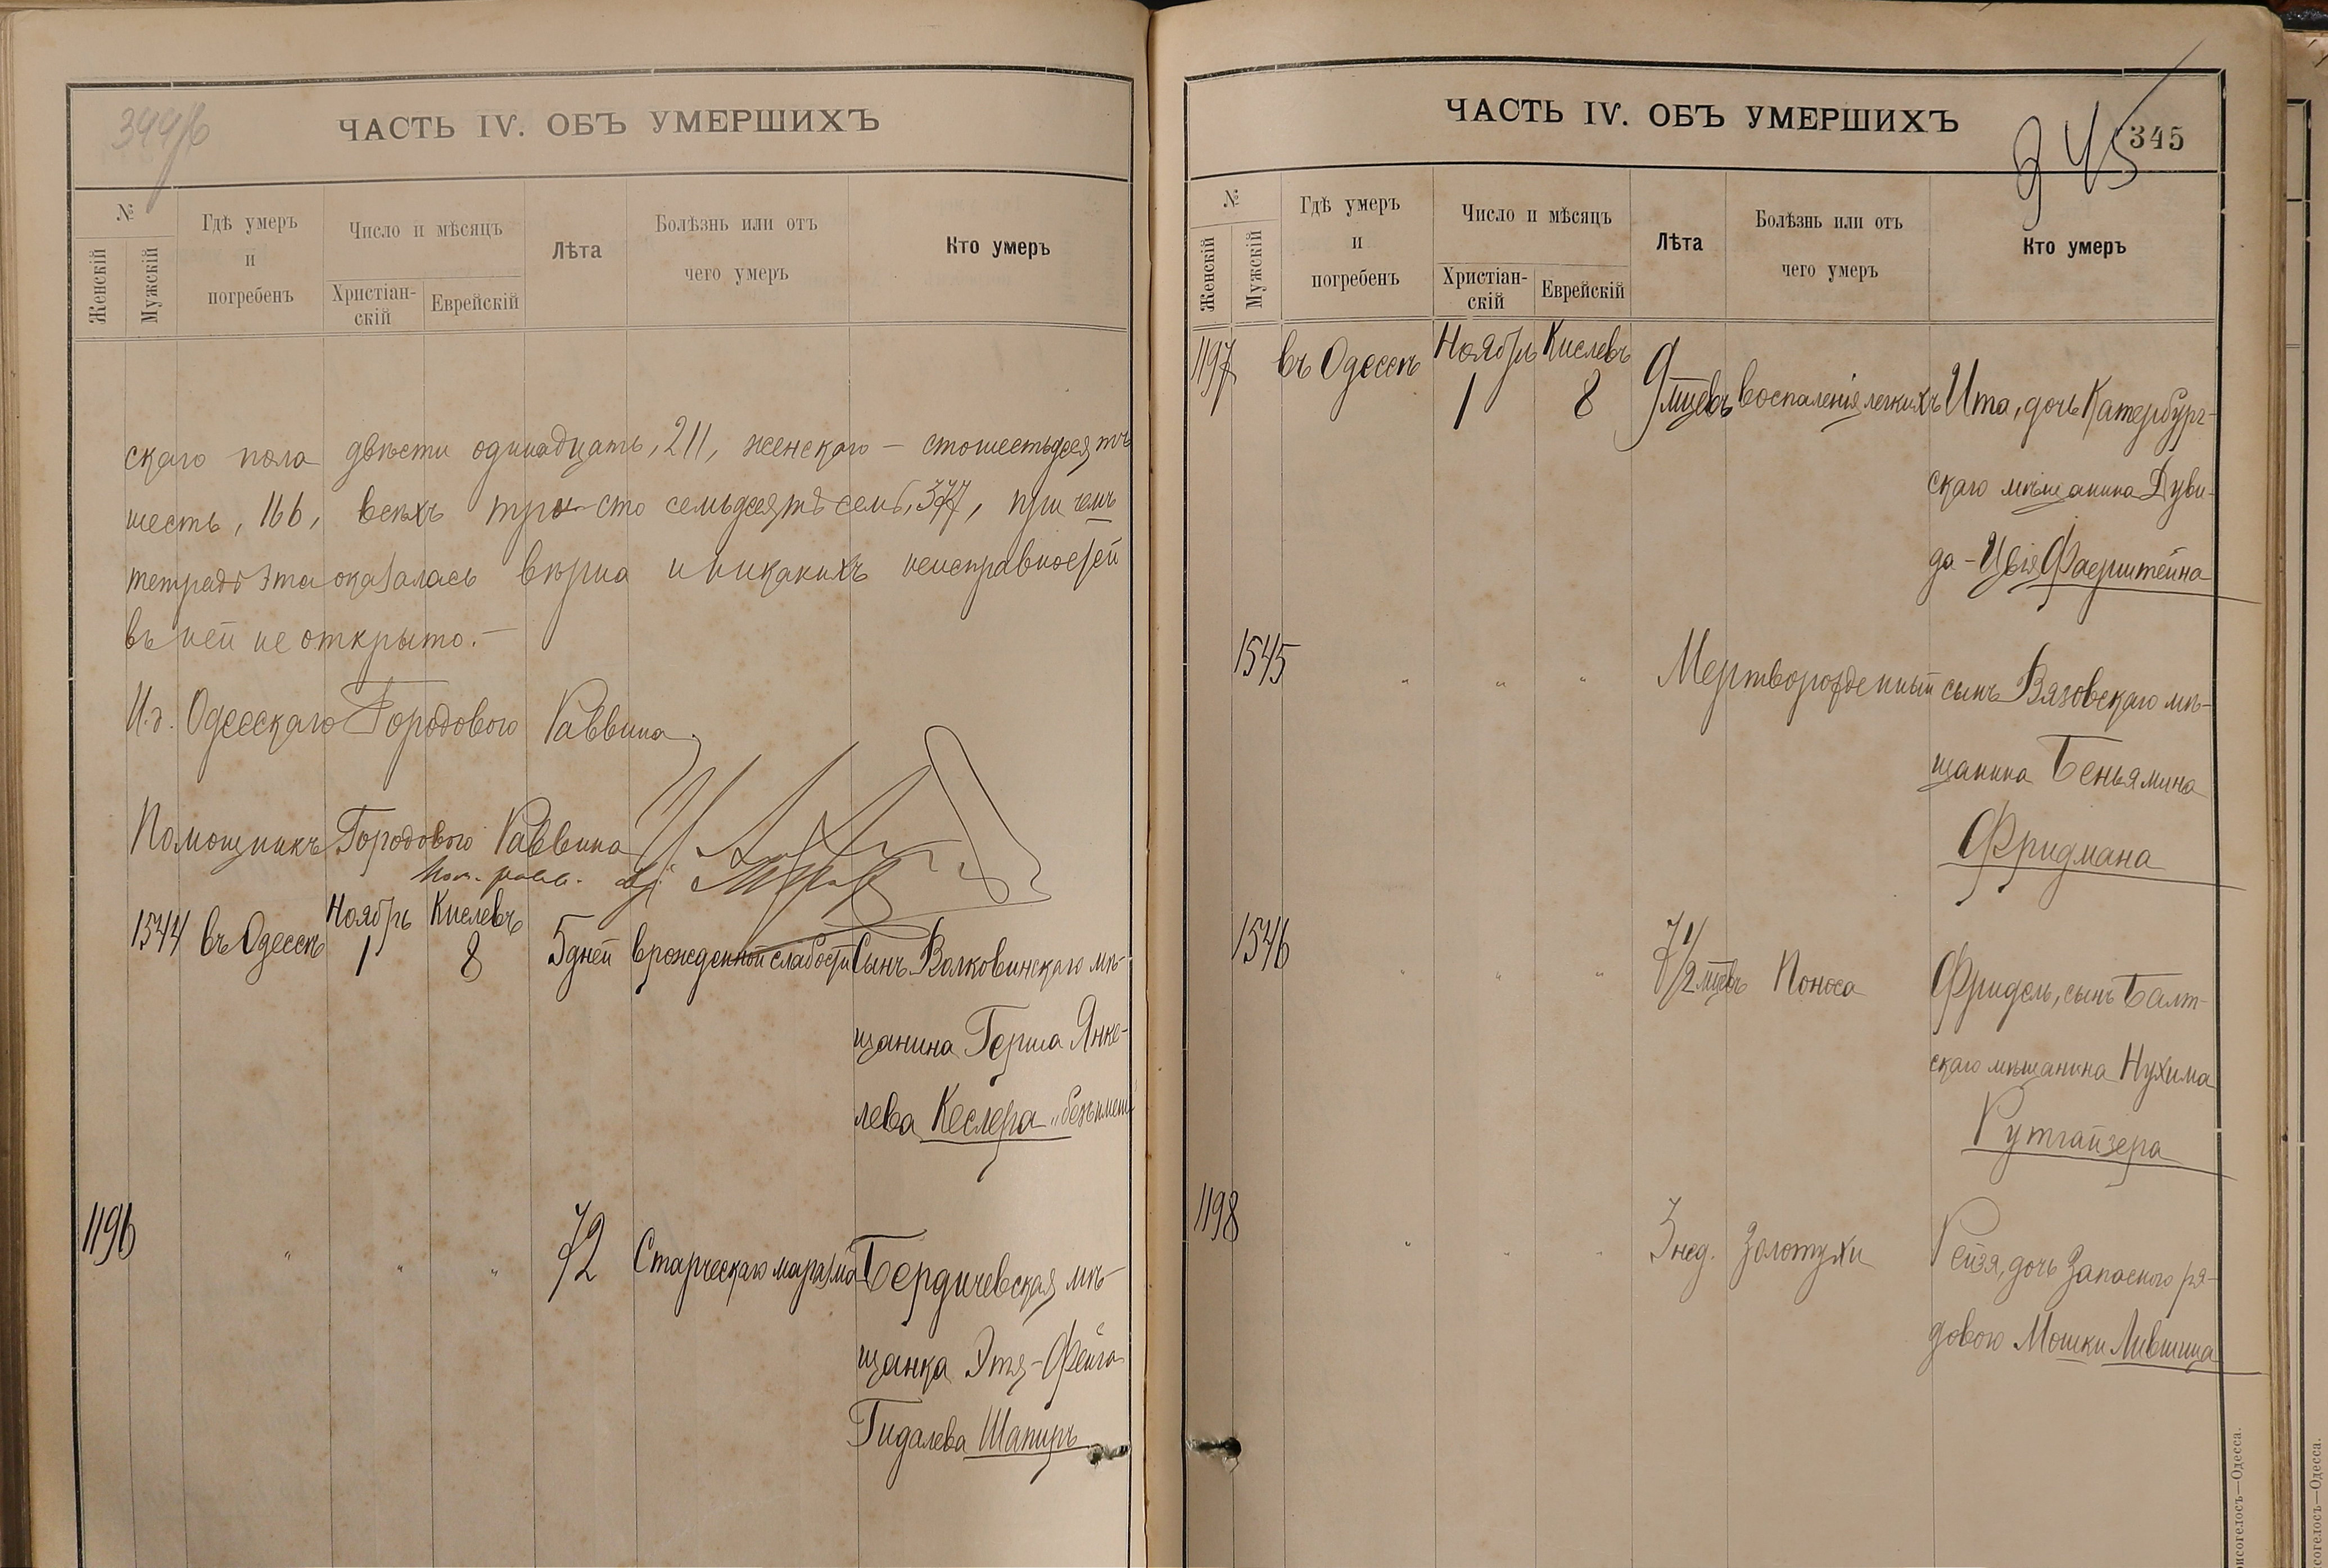 344/б
ЧАСТЬ IV. ОБЪ УМЕРШИХЪ
№
Женскій
Мужскій
Гдѣ умеръ
и
погребенъ
Число и мѣсяцъ
Христіан-
скій
Еврейскій
Лѣта
Болѣзнь или отъ
чего умеръ
Кто умеръ
скаго пола двѣсти одинадцать, 211, женскаго — стошестьдесятъ
шесть, 166, всѣхъ три сто семьдесятъ семь, 377, при чемъ
тетрадь эта оказалась вѣрна и никакихъ неисправностей
въ ней не открыто.—
И.д. Одесскаго Городового Раввина
Помощникъ Городового Раввина
Пом. равв.
1544 въ Одессѣ Ноябрь 1 Кислевъ 8 5 дней врожденной слабости Сынъ Волковинскаго мѣ-
щанина Герша Янке-
лева Кеслера
1196 " " " 72 Старческаго маразма Бердичевская мѣ-
щанка Этя-Фейга
Гидалева Шапиръ
ЧАСТЬ IV. ОБЪ УМЕРШИХЪ
345
345
№
Женскій
Мужскій
Гдѣ умеръ
и
погребенъ
Число и мѣсяцъ
Христіан-
скій
Еврейскій
Лѣта
Болѣзнь или отъ
чего умеръ
Кто умеръ
1197 въ Одессѣ Ноябрь 1 Кислевъ 8 9 мцевъ воспаленія легкихъ Ита, дочь Катербург-
скаго мѣщанина Дуви-
да-Цвія Фаерштейна
1545 " " " Мертворожденный сынъ Вязовскаго мѣ-
щанина Беньямина
Фридмана
1546 " " " 7 1/2 мцевъ Поноса Фридель, сынъ Балт-
скаго мѣщанина Нухима
Рутгайзера
1198 " " " 3 нед. Золотухи Рейзя, дочь Запасного ря-
дового Мошки Лившица
—Одесса.
—Одесса.